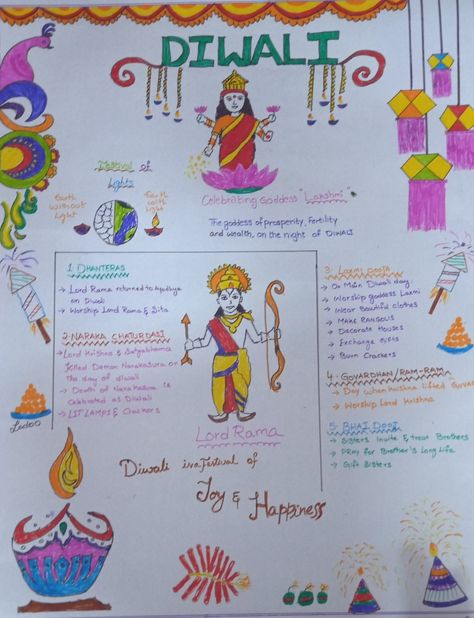 DIWALI
Festival of
Lights
Earth
without
Light
Earth
with
Light
Celebrating Goddess "Lakshmi"
The goddess of prosperity, Fertility
and wealth, on the night of DIWALI
1. DHANTERAS
→ Lord Rama returned to Ayodhya
on Diwali
→ Worship Lord Rama & Sita
2. NARAKA CHATURDASI
→ Lord Krishna & Satyabhama
killed Demon Narakasura on
the day of diwali
→ Death of Narakasura is
Celebrated as Diwali
→ LIT LAMPS & Crackers
Lord Rama
3. LAXMI POOJA
→ On Main Diwali day
→ Worship goddess Laxmi
→ Wear Beautiful clothes
→ MAKE RANGOLIS
→ Decorate Houses
→ Exchange Gifts
→ Burn Crackers
4. GOVARDHAN/RAM-RAM
→ Day when Krishna lifted
→ Worship Lord Krishna
5. BHAI DOOJ
→ Sisters Invite & treat Brothers
→ PRay for Brother's Long Life
→ Gift Sisters
Ladoo
Diwali is a Festival of
Joy & Happiness